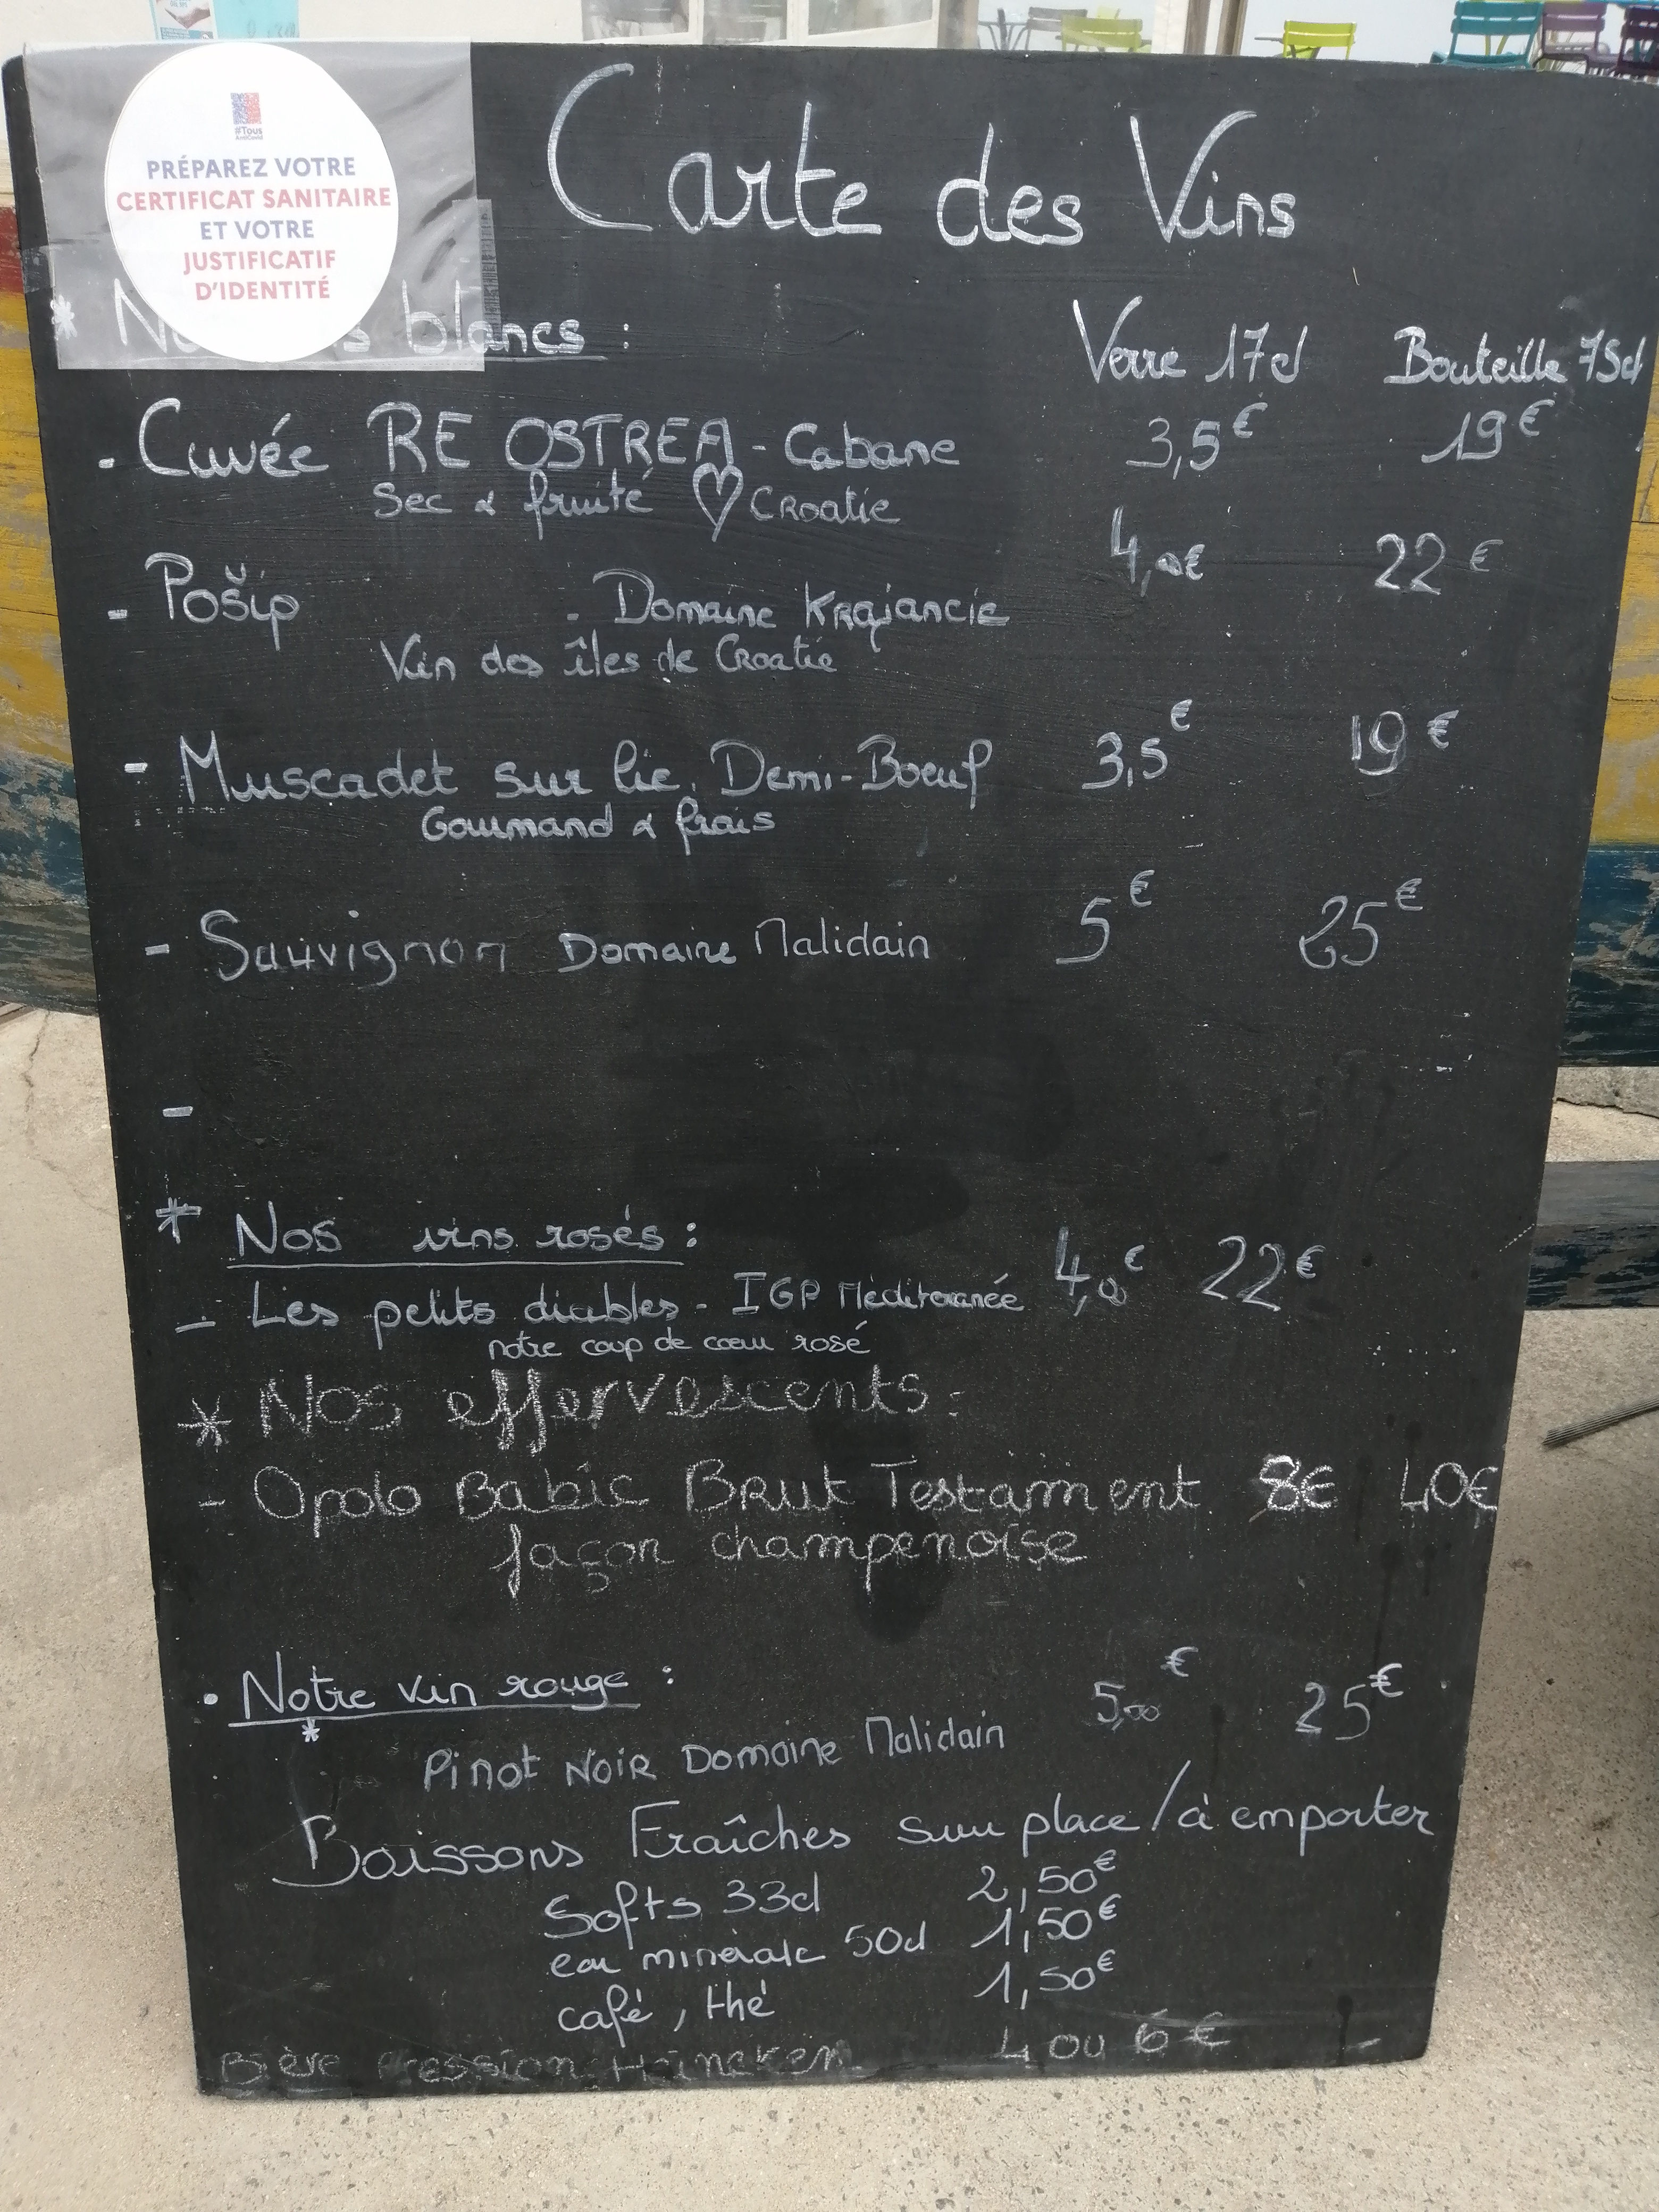 #Tous
AntiCovid
PRÉPAREZ VOTRE
CERTIFICAT SANITAIRE
ET VOTRE
JUSTIFICATIF
D'IDENTITÉ
Carte des Vins
* blancs :
Verre 17cl Bouteille 75cl
- Cuvée RE OSTREA - Cabane 3,5€ 19€
Sec & fruité ♡ Croatie
- Pošip - Domaine Krajancic 4,00€ 22€
Vin des îles de Croatie
- Muscadet sur lie. Demi-Boeuf 3,5€ 19€
Gourmand & frais
- Sauvignon Domaine Malidain 5€ 25€
-
* Nos vins rosés :
- Les petits diables - IGP Méditerranée 4,00€ 22€
notre coup de cœur rosé
* Nos effervescents :
- Opolo Babic Brut Testament 8€ 40€
façon champenoise
• Notre vin rouge : 5,00€ 25€
* Pinot Noir Domaine Malidain
Boissons Fraîches sur place / à emporter
Softs 33cl 2,50€
eau minérale 50cl 1,50€
café, thé 1,50€
Bière Pression Heineken 4 ou 6€